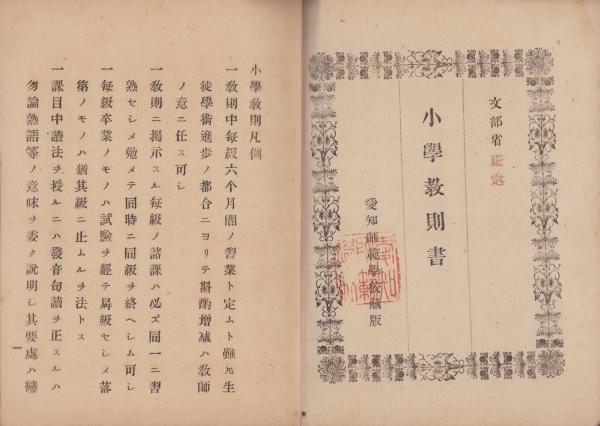 文部省正定
小學教則書
愛知師範學校藏版
小學教則凡例
一教則中每級六个月間ノ習業ト定ムト雖ㇳモ生
徒學術進歩ノ都合ニヨリテ斟酌增減ハ教師
ノ意ニ任ス可シ
一教則ニ揭示スル每級ノ諸課ハ必ズ同一ニ習
熟セシメ勉メテ同時ニ同級ヲ終ヘシム可シ
一每級卒業ノモノハ試驗ヲ經テ昇級セシメ落
第ノモノハ猶其級ニ止ムルヲ法トス
一課目中讀法ヲ授ルニハ發音句讀ヲ正スルハ
勿論熟語等ノ意味ヲ委ク說明シ其要處ハ
一